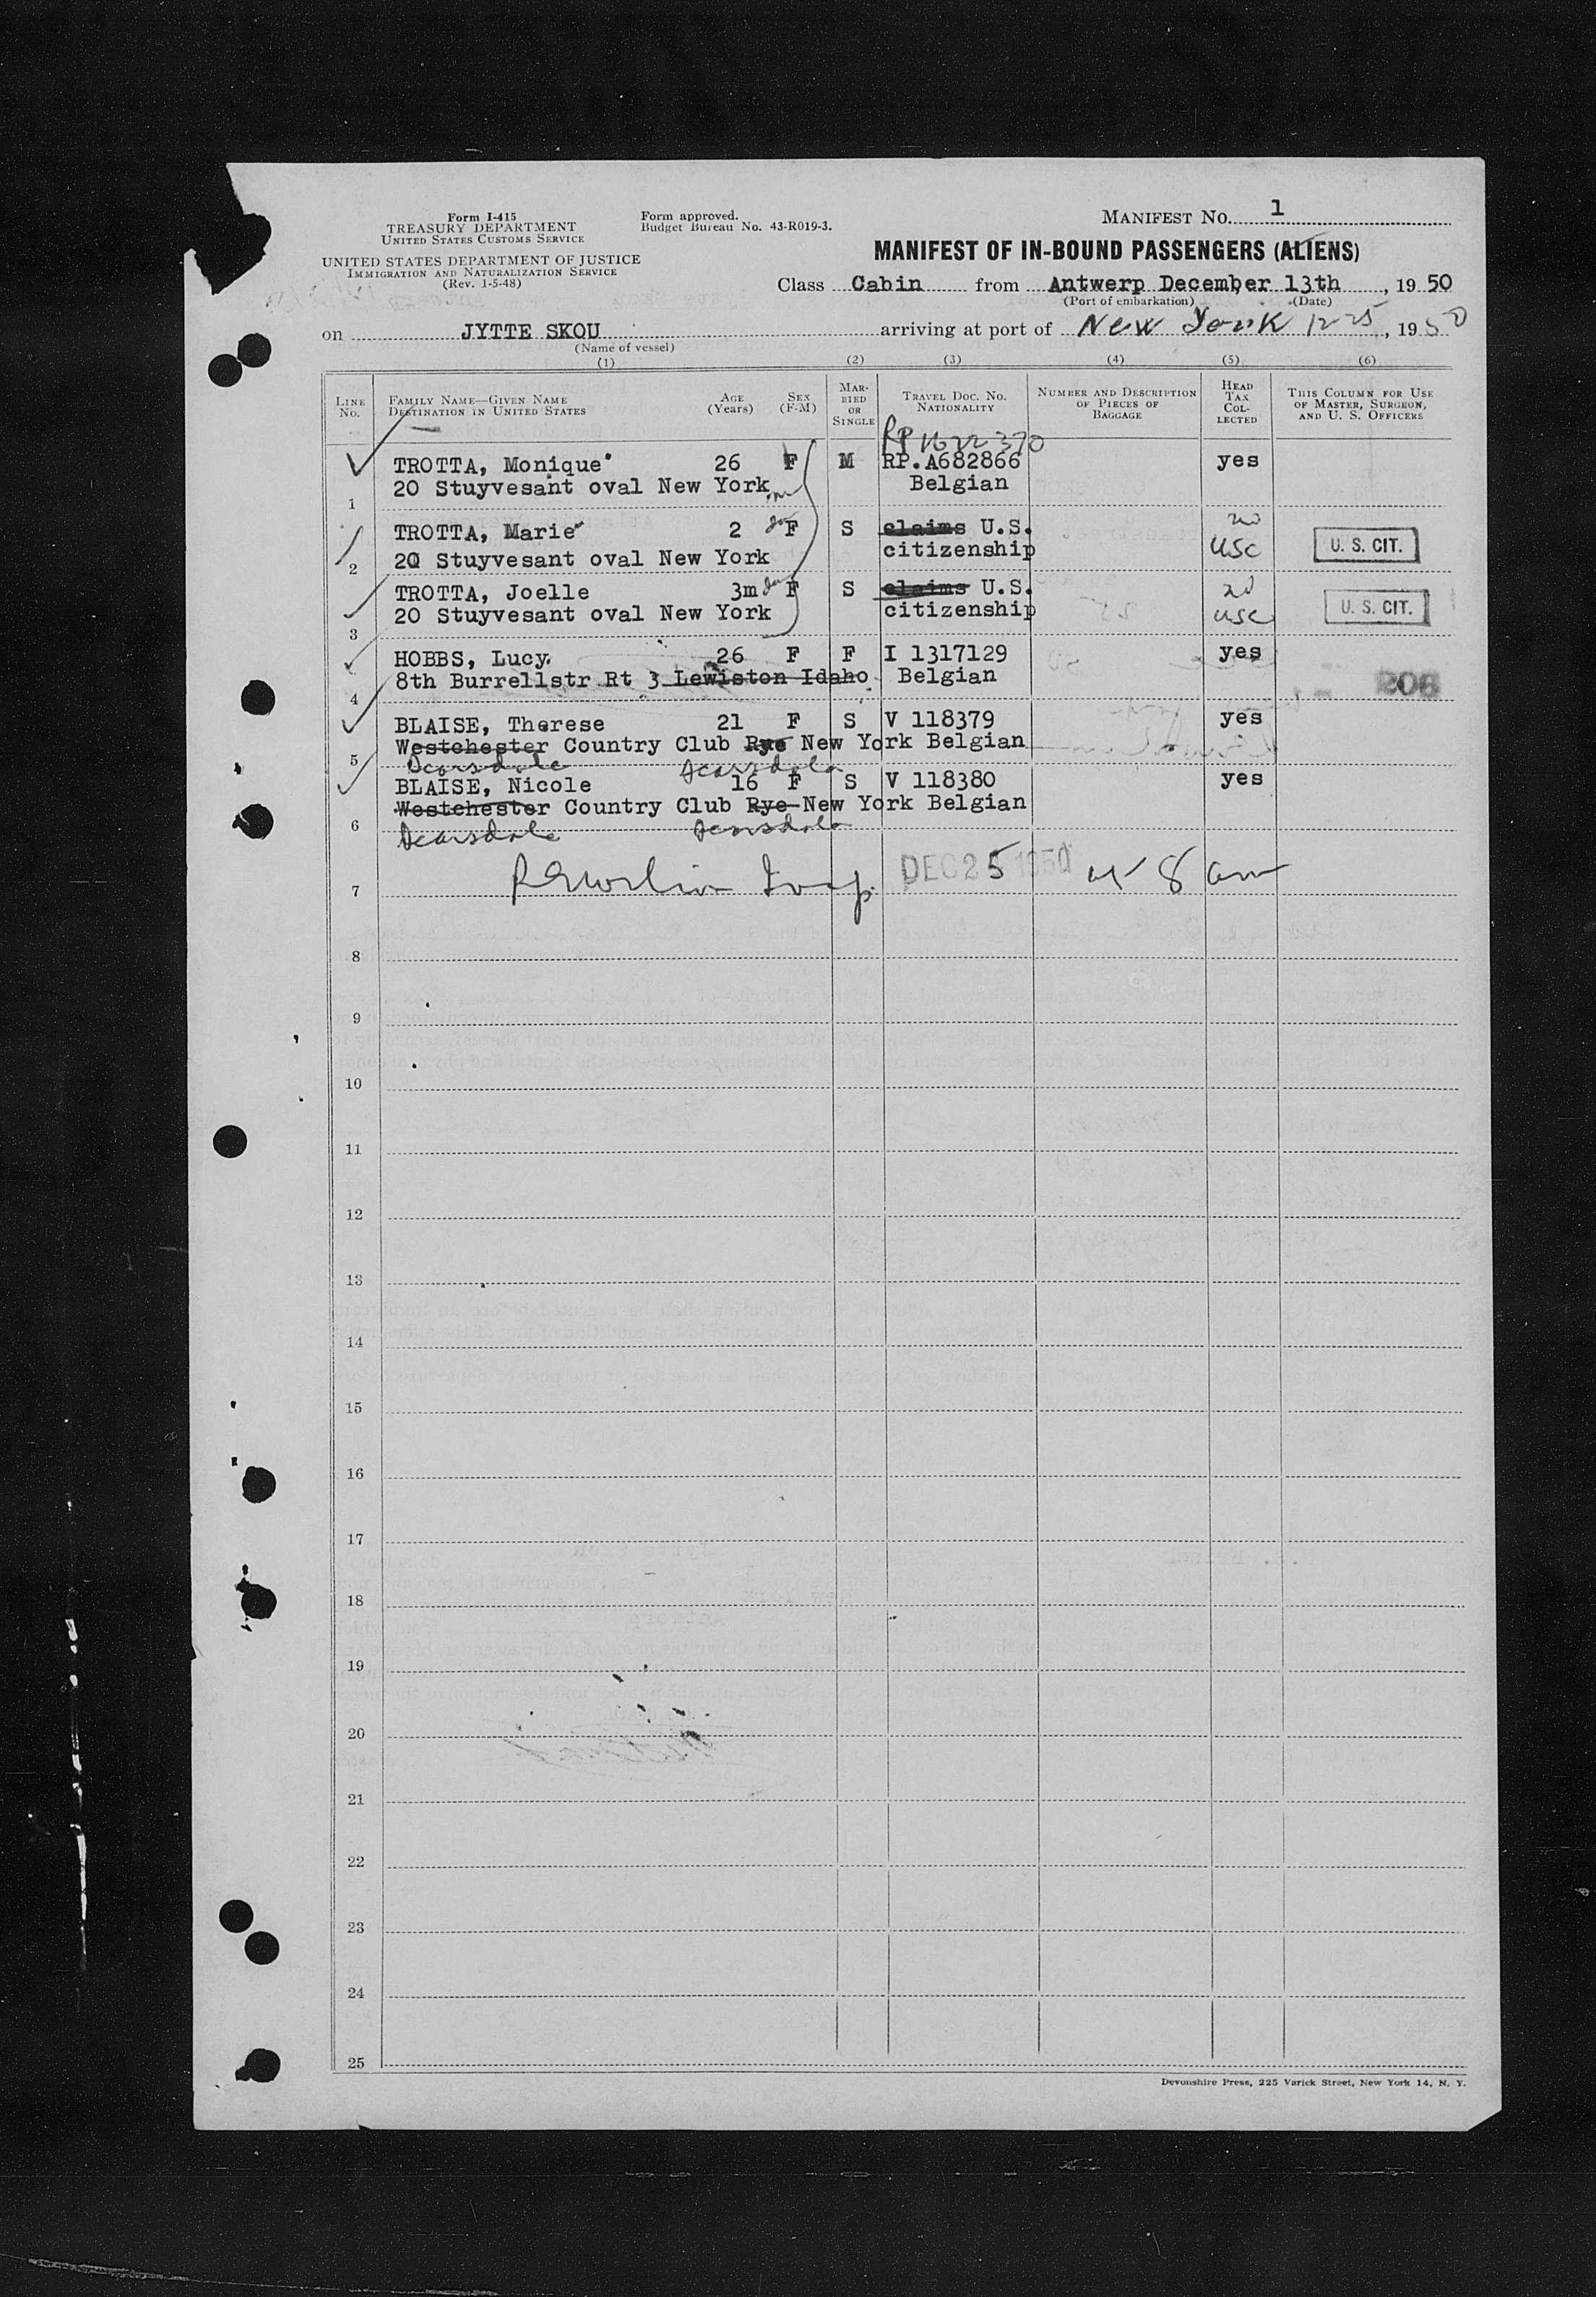 Form I-415
TREASURY DEPARTMENT
UNITED STATES CUSTOMS SERVICE
UNITED STATES DEPARTMENT OF JUSTICE
IMMIGRATION AND NATURALIZATION SERVICE
(Rev. 1-5-48)
Form approved.
Budget Bureau No. 43-R019-3.
MANIFEST NO. 1
MANIFEST OF IN-BOUND PASSENGERS (ALIENS)
Class Cabin from Antwerp December 13th, 1950
(Port of embarkation) (Date)
on JYTTE SKOU arriving at port of New York 12 25, 1950
(Name of vessel)
(1) (2) (3) (4) (5) (6)
LINE No. FAMILY NAME—GIVEN NAME DESTINATION IN UNITED STATES AGE (Years) SEX (F-M) MARRIED OR SINGLE TRAVEL DOC. NO. NATIONALITY NUMBER AND DESCRIPTION OF PIECES OF BAGGAGE HEAD TAX COLLECTED THIS COLUMN FOR USE OF MASTER, SURGEON, AND U. S. OFFICERS
RP 1622370
TROTTA, Monique 26 F M RP.A682866 yes
20 Stuyvesant oval New York Belgian
1
TROTTA, Marie 2 F S claims U.S. no
20 Stuyvesant oval New York citizenship USC U. S. CIT.
2
TROTTA, Joelle 3m F S claims U.S. no
20 Stuyvesant oval New York citizenship USC U. S. CIT.
3
HOBBS, Lucy. 26 F F I 1317129 yes
8th Burrellstr Rt 3 Lewiston Idaho Belgian 206
4
BLAISE, Therese 21 F S V 118379 yes
Westchester Country Club Rye New York Belgian
5
Scarsdale Scarsdale
BLAISE, Nicole 16 F S V 118380 yes
Westchester Country Club Rye New York Belgian
6
Scarsdale Scarsdale
Insp. DEC 25 1950 8 am
7
8
9
10
11
12
13
14
15
16
17
18
19
20
21
22
23
24
25
Devonshire Press, 225 Varick Street, New York 14, N. Y.